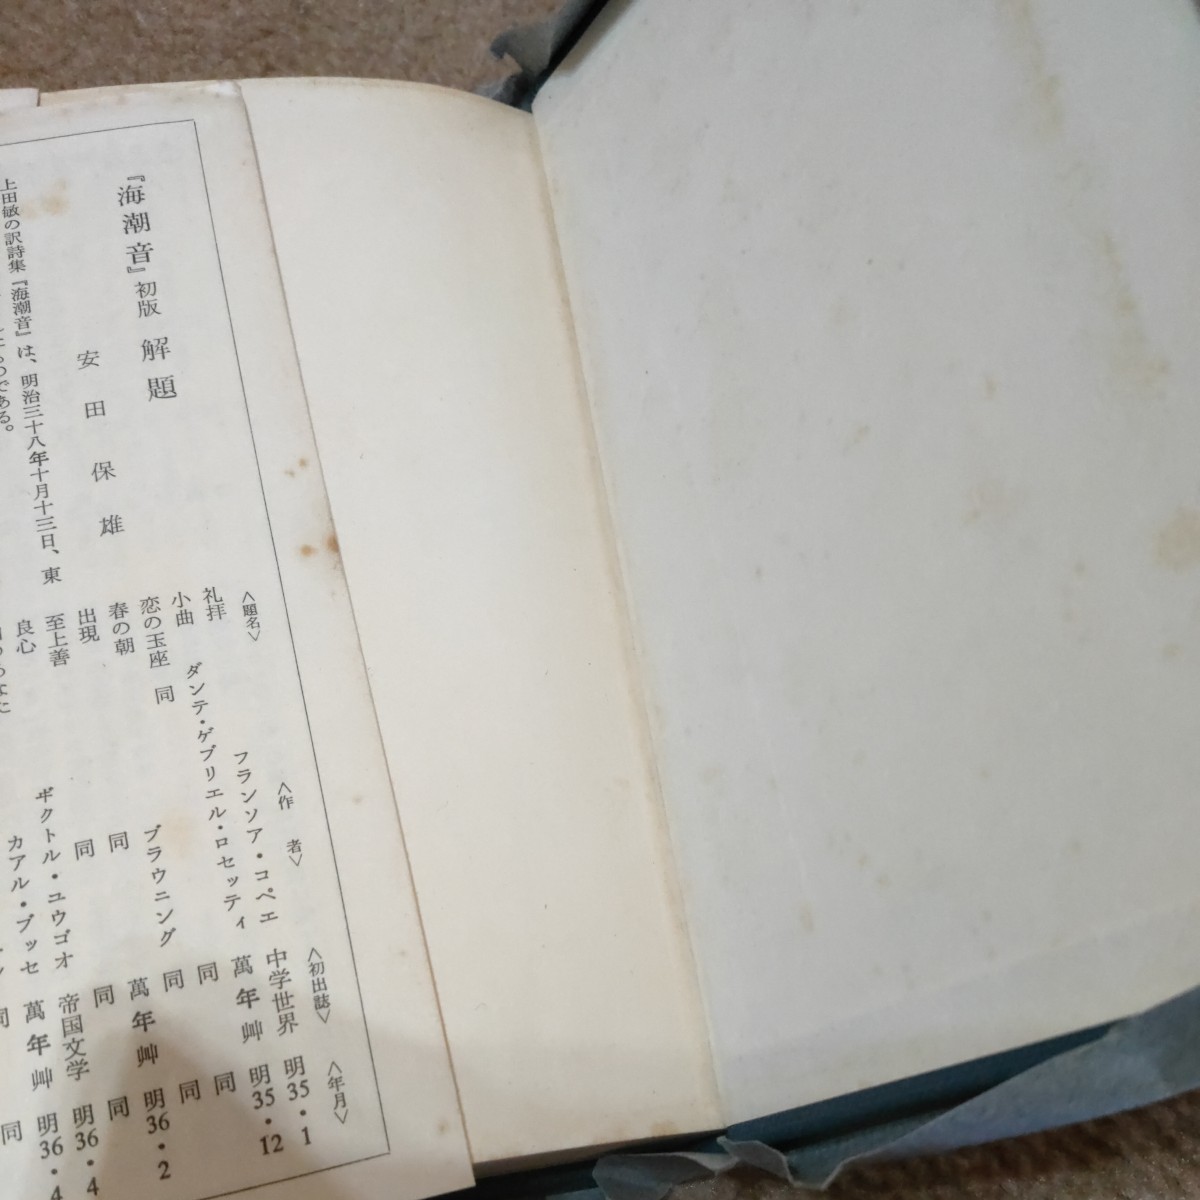 『海潮音』初版 解題
安田保雄
上田敏の訳詩集『海潮音』は、明治三十八年十月十三日、東
ものである。
〈題名〉 〈作者〉 〈初出誌〉 〈年月〉
礼拝 フランソア・コペエ 中学世界 明35・1
小曲 ダンテ・ゲブリエル・ロセッティ 萬年艸 明35・12
恋の玉座 同 同 同
春の朝 ブラウニング 同 同
出現 同 萬年艸 明36・2
至上善 同 同 同
良心 ヰクトル・ユウゴオ 帝国文学 明36・4
カアル・ブッセ 萬年艸 明36・4
同 同